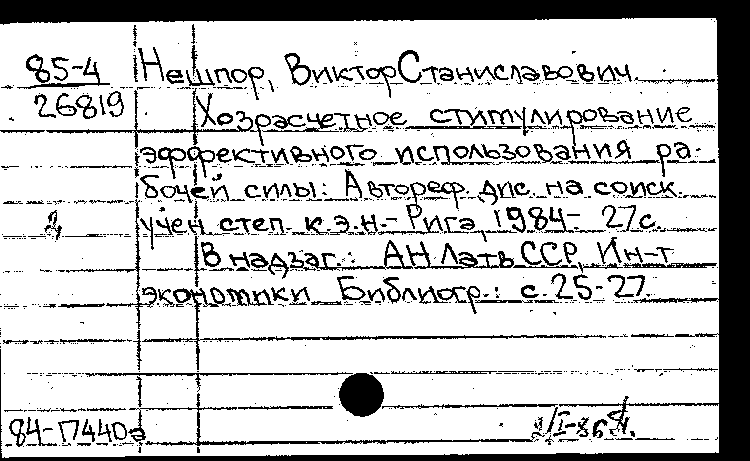 85-4
26819
Нешпор, Виктор Станиславович.
Хозрасчетное стимулирование
эффективного использования ра-
бочей силы: Автореф. дис. на соиск.
учен. степ. к.э.н.- Рига, 1984- 27с.
В надзаг.: АН Латв ССР, Ин-т
экономики Библиогр.: с.25-27.
84-17440а